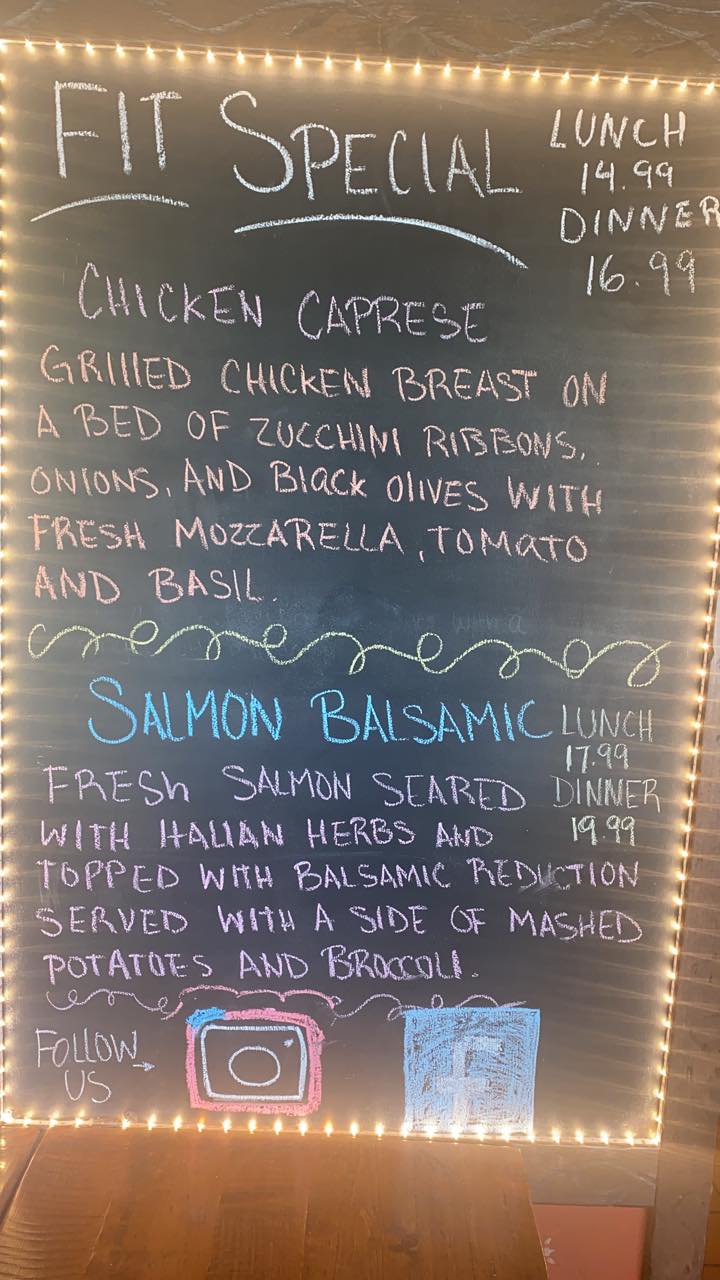 FIT SPECIAL
LUNCH
14.99
DINNER
16.99
CHICKEN CAPRESE
GRIllED CHICKEN BREAST ON
A BED OF ZUCCHINI RIBBONS,
ONIONS, AND BlacK OlIVES WITH
FRESH MOZZARELLA, TOMaTO
AND BASIL.
SALMON BALSAMIC
LUNCH
17.99
DINNER
19.99
FRESh SALMON SEARED
WITH ITALIAN HERBS AND
TOPPED WITH BALSAMIC REDUCTION
SERVED WITH A SIDE OF MASHED
POTATOES AND BROCCOLI.
FOLLOW
US
f